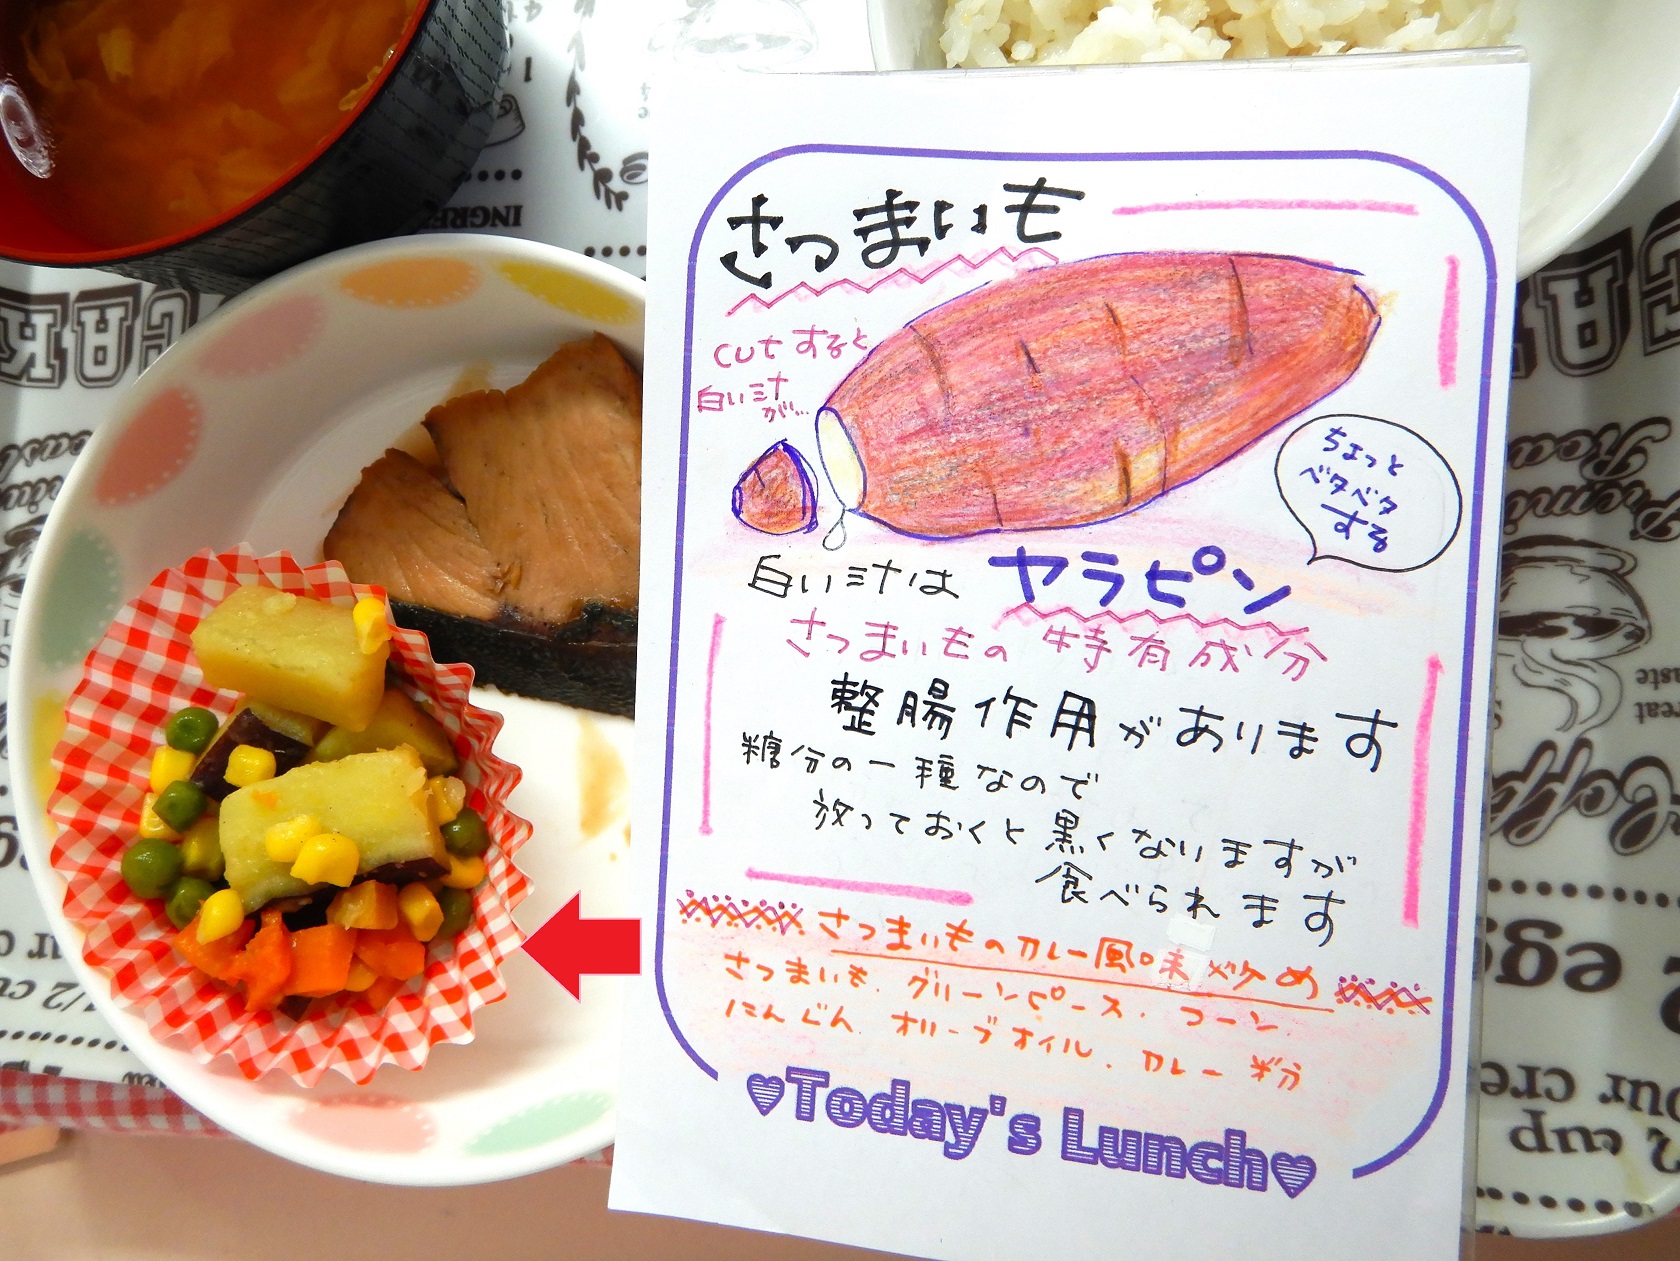 さつまいも
cutすると
白い汁
が…
ちょっと
ベタベタ
する
白い汁は ヤラピン
さつまいもの 特有成分
整腸作用があります
糖分の一種なので
放っておくと黒くなりますが
食べられます
さつまいものカレー風味炒め
さつまいも、グリーンピース、コーン、
にんじん、オリーブオイル、カレー粉
♥Today's Lunch♥
INGRE
CAK
Premi
Roa
Coffe
egg
our cre
2 cup
1/2 cu
our c